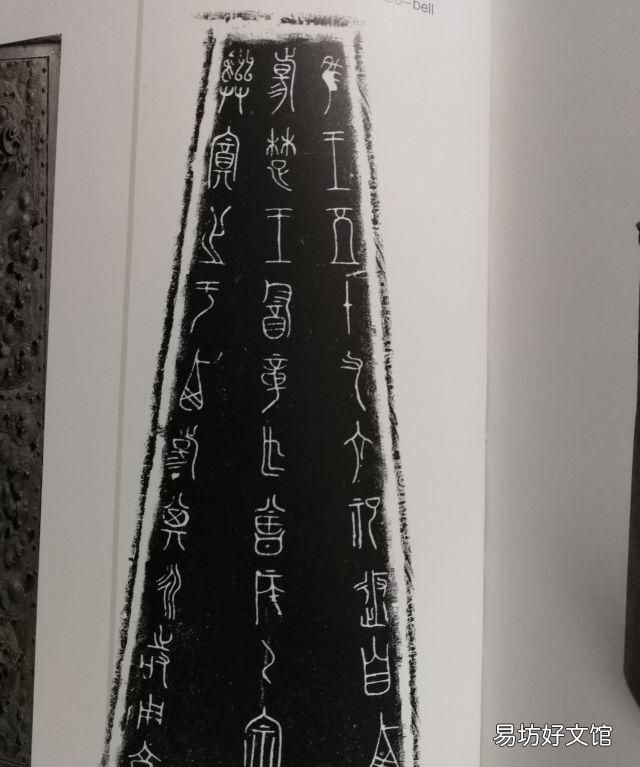 Bo-bell
隹王五十又六祀返自西
昜楚王酓章乍曾侯乙宗
彝奠之于西昜其永持用享
易坊好文馆